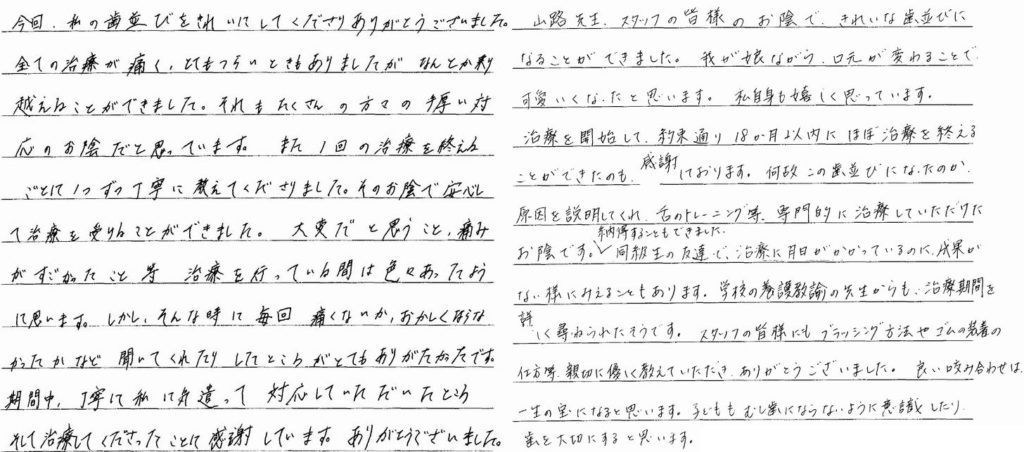 今回、私の歯並びをきれいにしてくださりありがとうございました。
全ての治療が痛く、とてもつらいときもありましたが なんとか乗り
越えることができました。それもたくさんの方々の手厚い対
応のお陰だと思っています。 また1回の治療を終える
ごとに1つずつ丁寧に教えてくださりました。そのお陰で安心し
て治療を受けることができました。 大変だと思うこと、痛み
がすごかったこと等 治療を行っている間は色々あったよう
に思います。しかし、そんな時に毎回 痛くないか、おかしくならな
かったかなど 聞いてくれたりしてところがとてもありがたかったです。
期間中、丁寧に私に気遣って 対応していただいたところ
そして治療してくださったことに感謝しています。ありがとうございました。
山路先生、スタッフの皆様のお陰で、きれいな歯並びに
なることができました。 我が娘ながら、口元が変わることで
可愛いくなったと思います。 私自身も嬉しく思っています。
治療を開始して、約束通り18か月以内にほぼ治療を終える
ことができたのも、感謝しております。何故この歯並びになったのか、
原因を説明してくれ、舌のトレーニング等、専門的に治療していただけた
お陰です。納得することもできました。同級生の友達で、治療に月日がかかっているのに、成果が
ない様にみえることもあります。学校の養護教諭の先生からも、治療期間を
詳しく尋ねられたそうです。 スタッフの皆様にもブラッシング方法やゴムの装着の
仕方等、親切に優しく教えていただき、ありがとうございました。 良い咬み合わせは、
一生の宝になると思います。子どももむし歯にならないように意識したり、
歯を大切にすると思います。